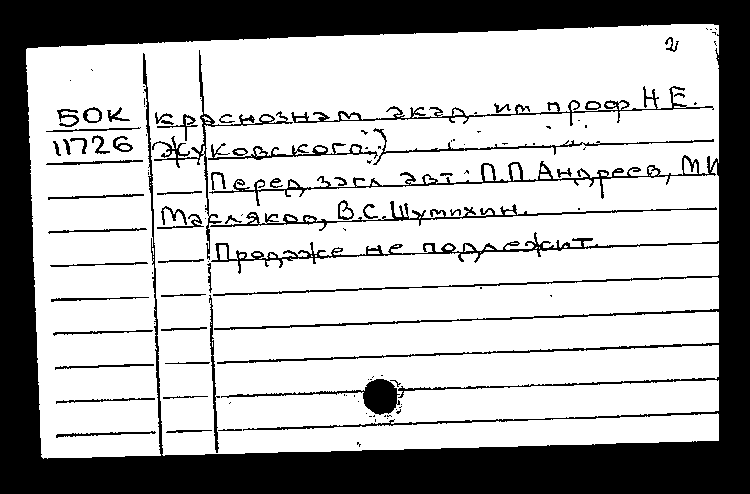 2
БОК краснознам акад. им проф. Н.Е.
11726 Жуковского)
Перед загл авт: П.П Андреев, М.И
Масляков, В.С. Шутихин.
Продаже не подлежит.